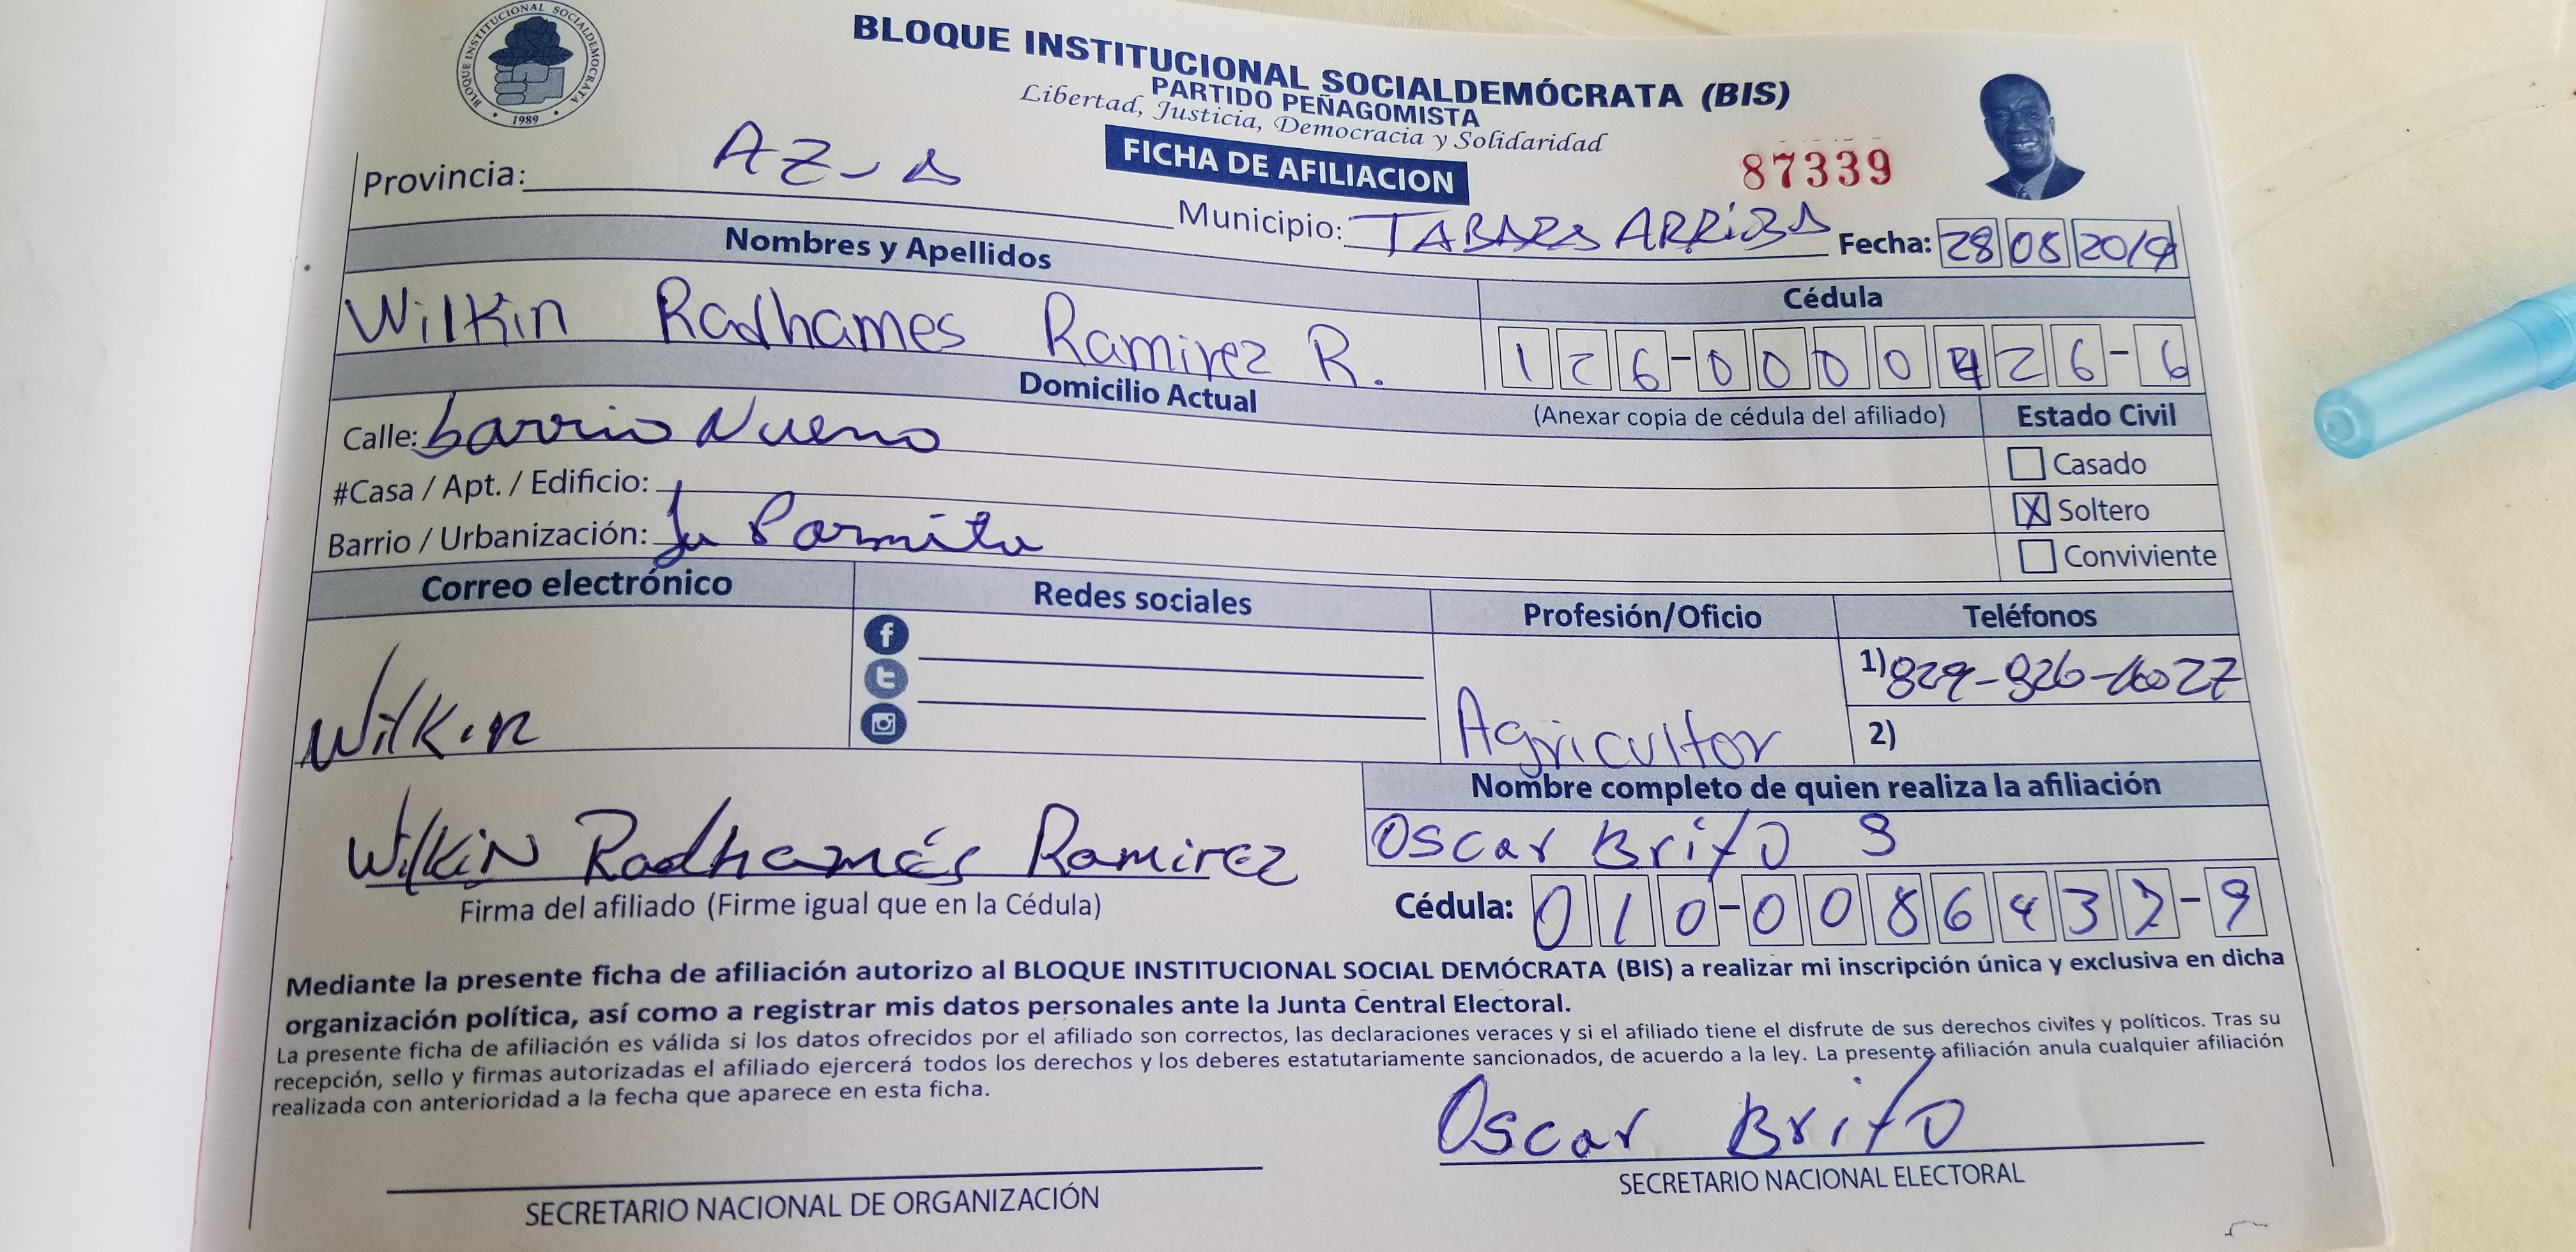 BLOQUE INSTITUCIONAL SOCIALDEMÓCRATA
1989
BLOQUE INSTITUCIONAL SOCIALDEMÓCRATA (BIS)
PARTIDO PEÑAGOMISTA
Libertad, Justicia, Democracia y Solidaridad
FICHA DE AFILIACION
87339
Provincia: AZUA
Municipio: TABARA ARRIBA Fecha: 28 08 2019
Nombres y Apellidos
Cédula
Wilkin Radhames Ramirez R.
126-0000426-6
Domicilio Actual
(Anexar copia de cédula del afiliado)
Estado Civil
Calle: barrio Nuevo
Casado
#Casa / Apt. / Edificio:
X Soltero
Barrio / Urbanización:
Conviviente
Correo electrónico
Redes sociales
Profesión/Oficio
Teléfonos
Wilkin
Agricultor
1) 829-926-
2)
Nombre completo de quien realiza la afiliación
Oscar Brito S
Wilkin Radhamés Ramirez
Firma del afiliado (Firme igual que en la Cédula)
Cédula: 010-0086432-9
Mediante la presente ficha de afiliación autorizo al BLOQUE INSTITUCIONAL SOCIAL DEMÓCRATA (BIS) a realizar mi inscripción única y exclusiva en dicha
organización política, así como a registrar mis datos personales ante la Junta Central Electoral.
La presente ficha de afiliación es válida si los datos ofrecidos por el afiliado son correctos, las declaraciones veraces y si el afiliado tiene el disfrute de sus derechos civiles y políticos. Tras su
recepción, sello y firmas autorizadas el afiliado ejercerá todos los derechos y los deberes estatutariamente sancionados, de acuerdo a la ley. La presente afiliación anula cualquier afiliación
realizada con anterioridad a la fecha que aparece en esta ficha.
Oscar Brito
SECRETARIO NACIONAL DE ORGANIZACIÓN
SECRETARIO NACIONAL ELECTORAL